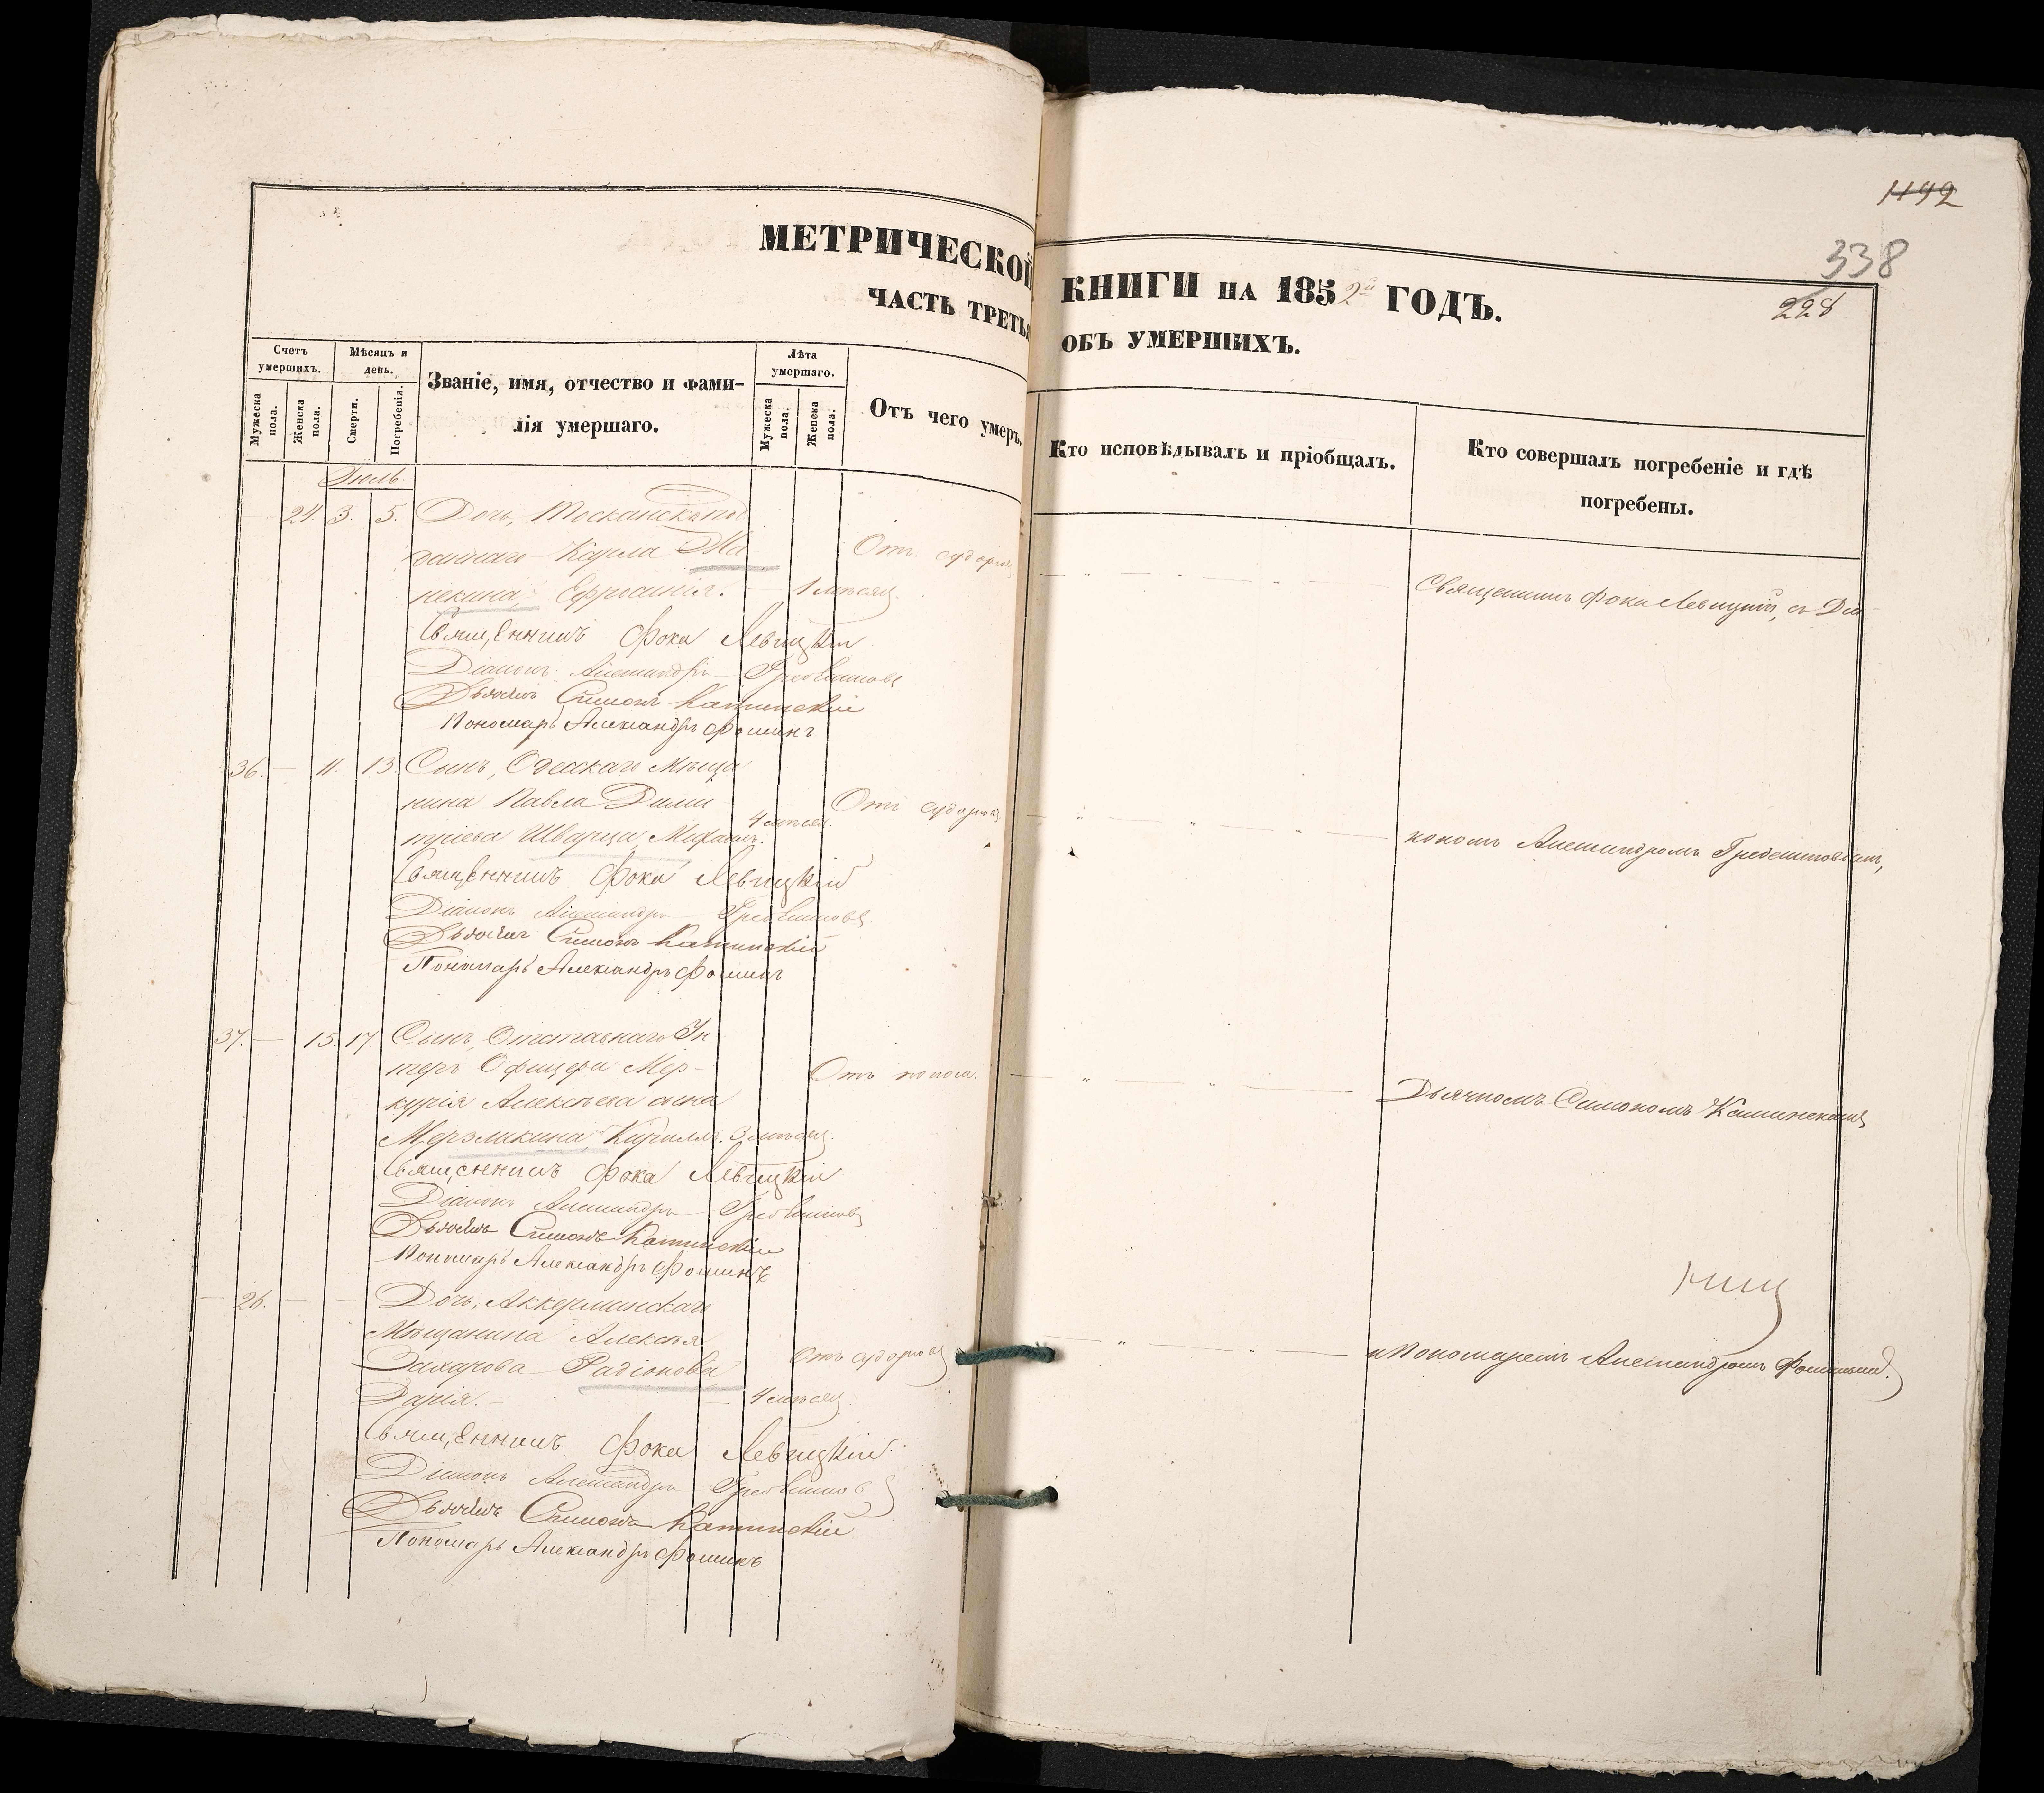 1192
338
228
МЕТРИЧЕСКОЙ КНИГИ НА 1852й ГОДЪ.
ЧАСТЬ ТРЕТЬЯ ОБЪ УМЕРШИХЪ.
Счетъ умершихъ.
Мужеска пола.
Женска пола.
Мѣсяцъ и день.
Смерти.
Погребенія.
Званіе, имя, отчество и фами-
лія умершаго.
Лѣта умершаго.
Мужеска пола.
Женска пола.
Отъ чего умеръ.
Кто исповѣдывалъ и пріобщалъ.
Кто совершалъ погребеніе и гдѣ
погребены.
Іюль.
24. 3. 5. Дочь, Тосканскаго под
даннаго Карла Ма
некина, Ефросинія. 1 мѣсяц.
Отъ судорогъ
Священникъ Фока Левицкій, съ Діа-
Священникъ Фока Левицкій
Діаконъ Александръ Гребенниковъ
Дьячекъ Симонъ Каминскій
Пономарь Александръ Фоминъ
36. — 11. 13. Сынъ, Одесскаго Мѣща
нина Павла Дими
тріева Шварца, Михаилъ. 4 мѣсяц.
Отъ судорогъ
кономъ Александромъ Гребенниковымъ,
Священникъ Фока Левицкій
Діаконъ Александръ Гребенниковъ
Дьячекъ Симонъ Каминскій
Пономарь Александръ Фоминъ
37. — 15. 17. Сынъ, Отставнаго Ун
теръ Офицера Мер-
курія Алексѣева сына
Мерзликина, Кириллъ. 3 мѣсяц.
Отъ поноса.
Дьячкомъ Симономъ Каминскимъ
Священникъ Фока Левицкій
Діаконъ Александръ Гребенниковъ
Дьячекъ Симонъ Каминскій
Пономарь Александръ Фоминъ
— 26. — — Дочь, Аккерманскаго
Мѣщанина Алексѣя
Захарова Радіонова
Дарія. — 4 мѣсяц.
Отъ судорогъ
и Пономаремъ Александромъ Фоминымъ.
Священникъ Фока Левицкій
Діаконъ Александръ Гребенниковъ
Дьячекъ Симонъ Каминскій
Пономарь Александръ Фоминъ